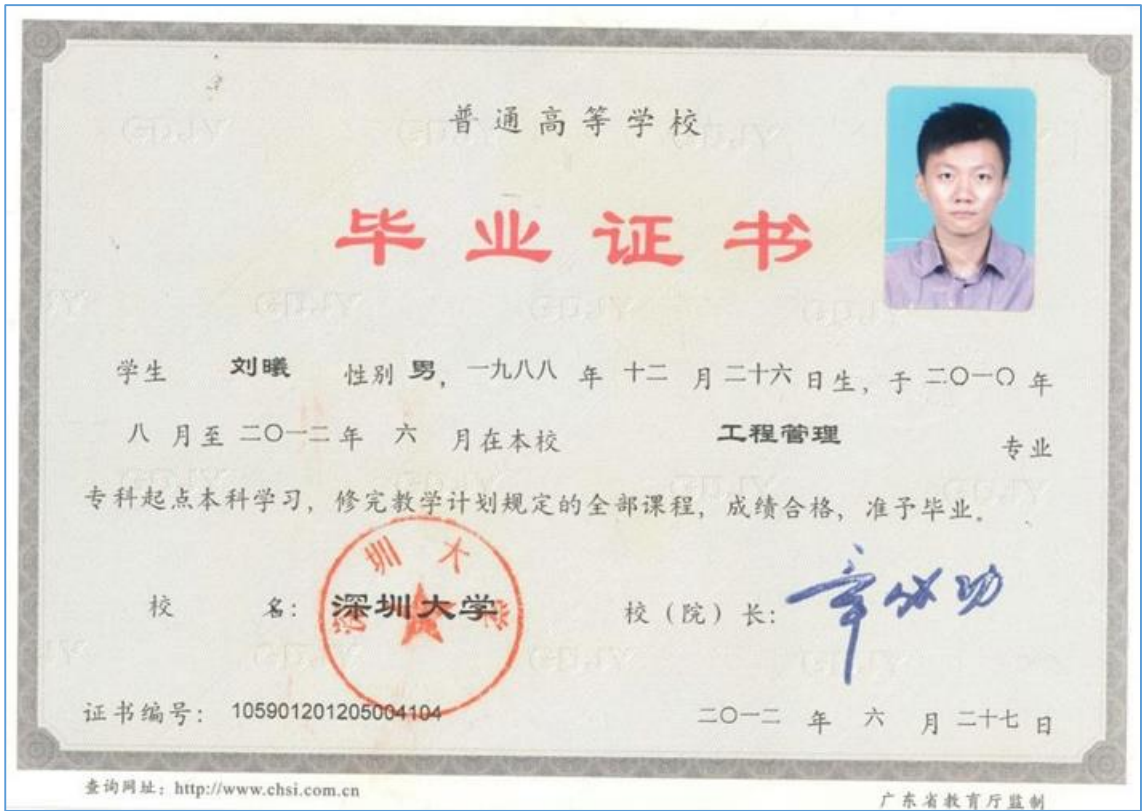 普通高等学校
毕业证书
学生 刘曦 性别 男，一九八八 年 十二 月 二十六 日生，于 二〇一〇 年
八 月至 二〇一二 年 六 月在本校 工程管理 专业
专科起点本科学习，修完教学计划规定的全部课程，成绩合格，准予毕业。
深圳大学
校 名：深圳大学 校（院）长：章必功
证书编号：105901201205004104 二〇一二 年 六 月 二十七 日
查询网址：http://www.chsi.com.cn 广东省教育厅监制
GDJY